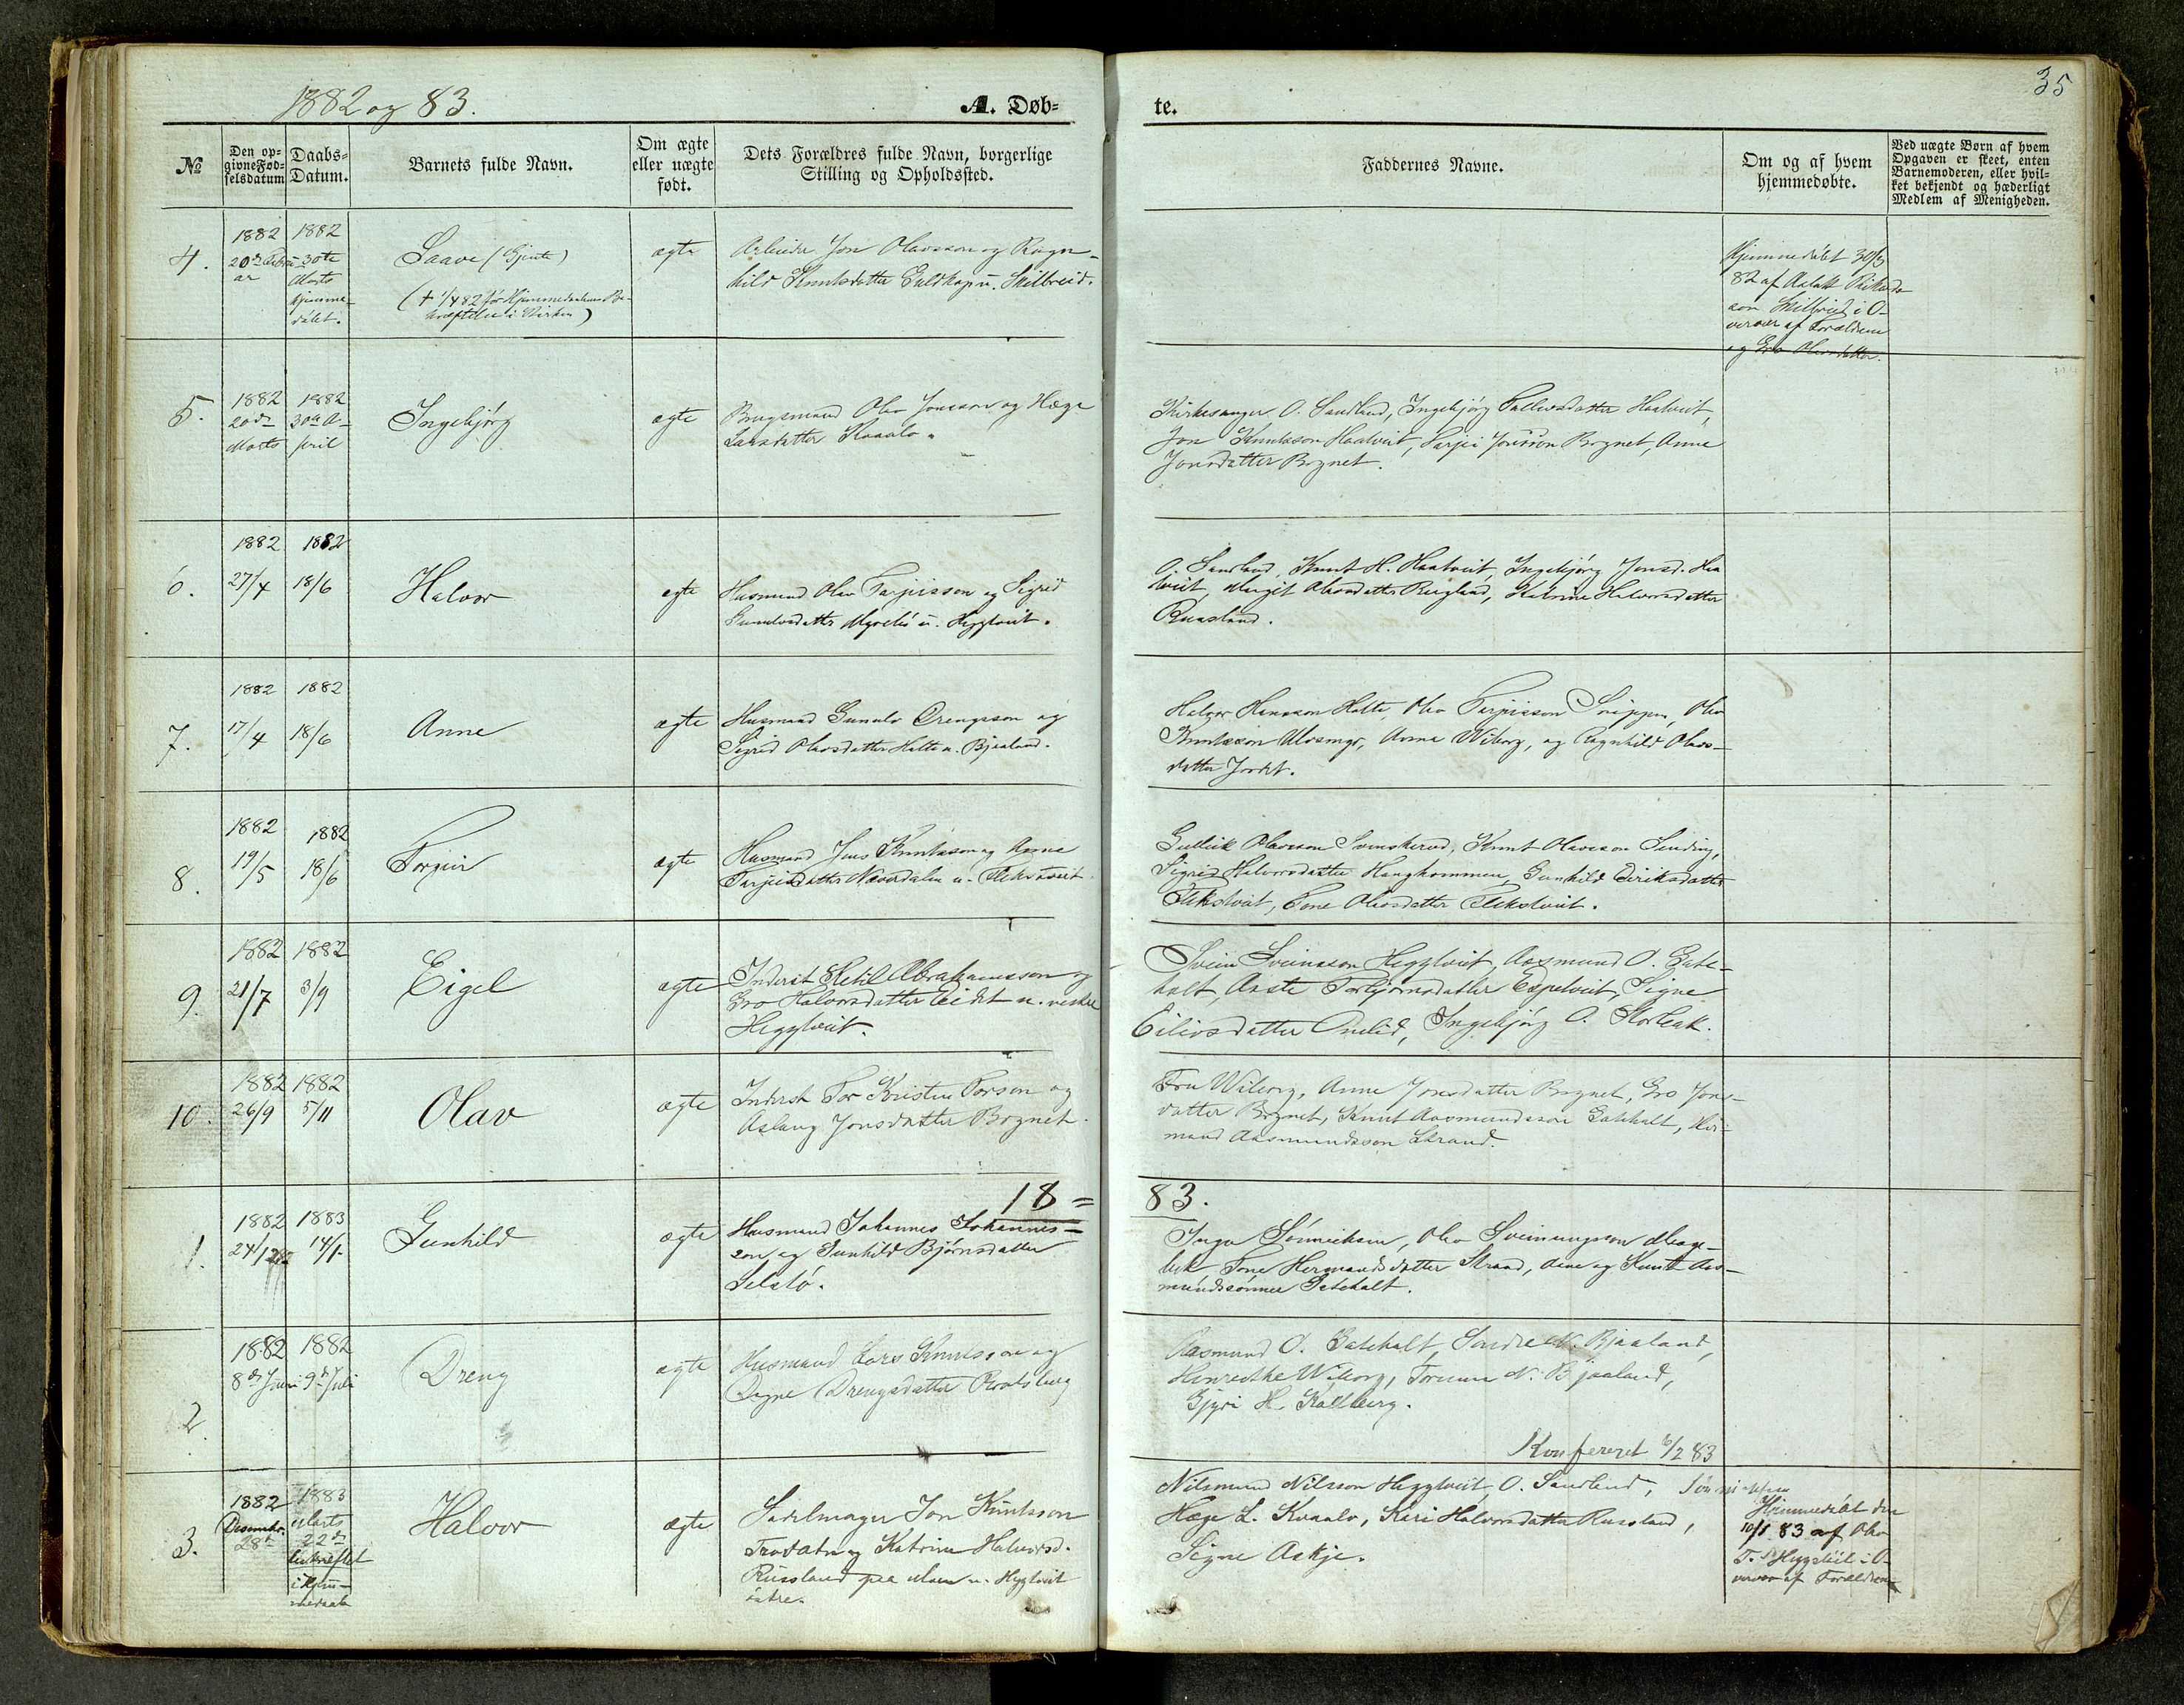 1882 og 83.
A. Døb-
te.
35
№
Den op-
givne Fød-
selsdatum
Daabs-
Datum.
Barnets fulde Navn.
Om ægte
eller uægte
født.
Dets Forældres fulde Navn, borgerlige
Stilling og Opholdssted.
Faddernes Navne.
Om og af hvem
hjemmedøbte.
Ved uægte Børn af hvem
Opgaven er skeet, enten
Barnemoderen, eller hvil-
ket bekjendt og hæderligt
Medlem af Menigheden.
4.
1882
20de Febru-
ar
1882
30te
Marts
hjemme-
døbt.
Saave (Gjente)
(† 1/4 82 før Hjemmedaabens Be-
kræftelse i Kirken)
ægte
Arbeider Jon Olavsson og Ragn-
hild Knutsdatter Guldkap u. Skilbreid.
Hjemmedøbt 30/3
82 af Aslak Rikards-
son Skilbreid i O-
vervær af Forældrene
og Gro Olavsdatter.
5.
1882
20de
Marts
1882
30te A-
pril
Ingebjørg
ægte
Brugsmand Olav Jonsson og Hæge
Larsdatter Kvaalo.
Kirkesanger O. Sandland, Ingebjørg datter Haatveit,
Jon Knutsson Haatveit, Tarjei Jonsson Bognet, Anne
Jonsdatter Bognet.
6.
1882
27/4
1882
18/6
Halvor
ægte
Husmand Olav Tarjeisson og Sigrid
Gunulvsdatter u. Heggtveit.
O. Sandland, Knut H. Haatveit, Ingebjørg Jonsd. Haa
tveit, Margit Olavsdatter, Katrine Halvorsdatter
Russland.
7.
1882
17/4
1882
18/6
Anne
ægte
Husmand Gunulv Drengsson og
Sigrid Olavsdatter Holte u. Bjaaland.
Halvor Hansson Holte, Olav Tarjeisson, Olav
Knutsson, Anne Wiborg, og Ragnhild Olavs-
datter Jordet.
8.
1882
19/5
1882
18/6
Torjeir
ægte
Husmand Jens Knutsson og Anne
Tarjeisdatter u. Flekstveit.
Gullik Olavsson, Knut Olavsson,
Sigrid Halvorsdatter Haughommen, Gunhild Eiriksdatter
Flekstveit, Tone Olavsdatter Flekstveit.
9.
1882
21/7
1882
3/9
Eigel
ægte
Inderst Ketil Abrahamsson og
Gro Halvorsdatter Eidet u. vestre
Heggtveit.
Svein Sveinsson Heggtveit, Aasmund O. Gate-
halt, Aaste Torbjørnsdatter Espetveit, Signe
Eilivsdatter, Ingebjørg O. Storleak.
10.
1882
26/9
1882
5/11
Olav
ægte
Inderst Tor Kristen Torson og
Aslaug Jonsdatter Bognet.
Fru Wiborg, Anne Jonsdatter Bognet, Gro Jons-
datter Bognet, Knut Aasmundsson Gatehalt, Her-
mand Aasmundsson Strand.
18=
83.
1.
1882
24/12 82
1883
14/1
Gunhild
ægte
Husmand Johannes Johannes-
son og Gunhild Bjørnsdatter
Selstø.
Inga Sønnichsen, Olav Sveinungson Mage-
bek, Tone Hermandsdatter Strand, Aanen og Knut Aas-
mundssønner Gatehalt.
2.
1882
8de Juni
1882
9de Juli
Dreng
ægte
Husmand Lars Knutsson og
Dagne Drengsdatter
Aasmund O. Gatehalt, Sondre N. Bjaaland,
Henriette Wiborg, Torunn N. Bjaaland,
Gjyri H. Kallberg.
Konfereret 6/2 83
3.
1882
Desembr.
28de
1883
Marts
22de
bekræftet
i Hjem-
medaab
Halvor
ægte
Sadelmager Jon Knutsson
Trovatn og Katrine Halvorsd.
Russland paa Moen u. Heggtveit
østre.
Nilsmund Nilsson Heggtveit, O. Sandland,
Hæge L. Kvaalo, Kari Halvorsdatter Russland,
Signe Askje.
Hjemmedøbt den
10/1 83 af Olav
T. Heggtveit i O-
vervær af Forældrene